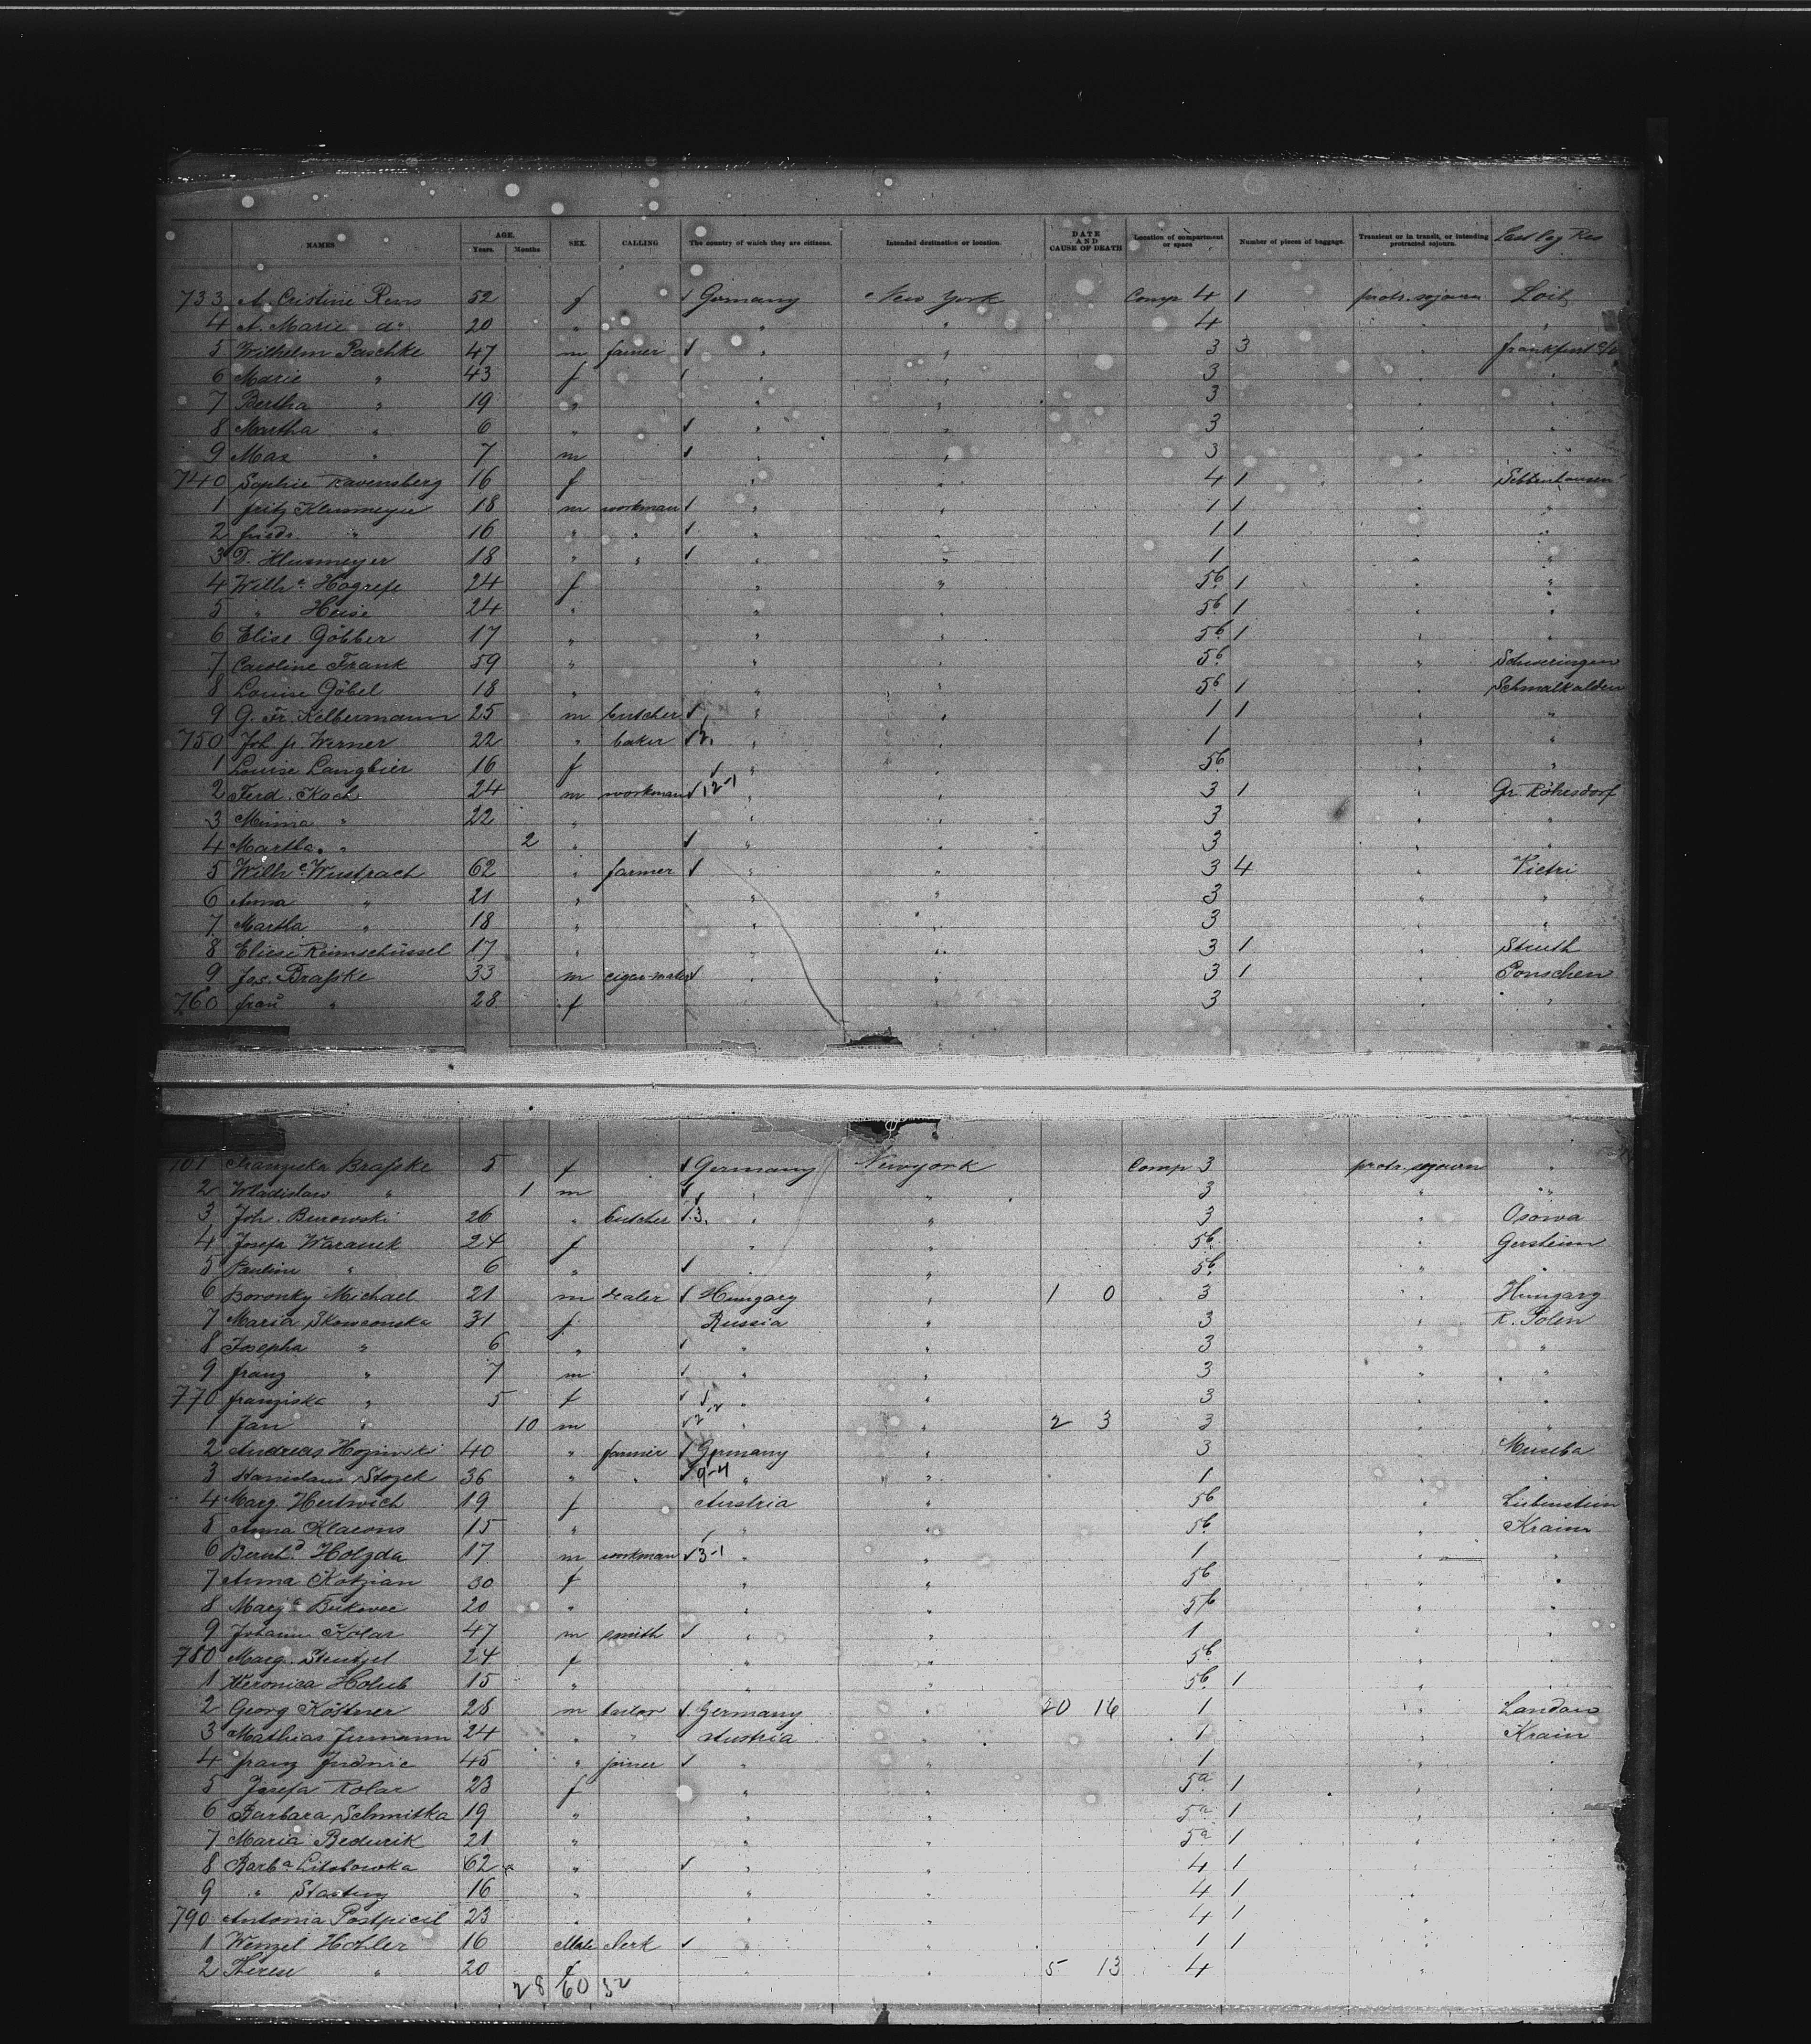 NAMES AGE. Years. Months SEX. CALLING The country of which they are citizens. Intended destination or location. DATE AND CAUSE OF DEATH Location of compartment or space Number of pieces of baggage. Transient or in transit, or intending protracted sojourn. Last leg Res
733 A. Cristine Rews 52 f Germany New York Comp 4 1 protr. sojourn Loit
4 A. Marie do 20 " " " 4 "
5 Wilhelm Paschke 47 m famer " " 3 3 " frankfurt a/o
6 Marie " 43 f " " 3 " "
7 Bertha " 19 " " " 3 " "
8 Martha " 6 " " " 3 " "
9 Max " 7 m " " 3 " "
740 Sophie Ravensberg 16 f " " 4 1 "
1 fritz Klusmeyer 18 m workman " " 1 1 " "
2 friedr. " 16 " " " " 1 1 " "
3 D. Klusmeyer 18 " " " " 1 " "
4 Wilhe Hogrefe 24 f " " 5b 1 " "
5 " Heise 24 " " " 5b 1 " "
6 Elise Göbber 17 " " " 5b 1 " "
7 Caroline Frank 59 " " " 5b " Schweringen
8 Louise Göbel 18 " " " 5b 1 " Schmalkalden
9 G. Fr. Kelbermann 25 m butcher " " 1 1 " "
750 Joh. fr. Werner 22 " baker 2 " " 1 " "
1 Louise Langbier 16 f " " 5b " "
2 Ferd. Koch 24 m workman 12-1 " " 3 1 " Gr. Röhrsdorf
3 Minna " 22 " " " 3 " "
4 Martha " 2 " " " 3 " "
5 Wilhe Wustrach 62 " farmer " " 3 4 " Vietri
6 Anna " 21 " " " 3 " "
7 Martha " 18 " " " 3 " "
8 Eliese Reimschüssel 17 " " " 3 1 " Struth
9 Jos. Brafske 33 m cigar-maker " " 3 1 " Ponschen
760 frau " 28 f " " 3 " "
761 Franziska Brafske 5 f Germany Newyork Comp 3 protr. sojourn "
2 Wladislaw " 1 m " " 3 " "
3 Joh. Burowski 26 " butcher 3 " " 3 " Osowa
4 Josefa 24 f " " 5b " Gersheim
5 Pauline " 6 " " " 5b " "
6 Boronky Michael 21 m dealer Hungary " 1 0 3 " Hungary
7 Maria Skowronska 31 f Russia " 3 " R. Polen
8 Josepha " 6 " " " 3 " "
9 franz " 7 m " " 3 " "
770 franziska " 5 f " " 3 " "
1 Jan " 10 m " " 2 3 3 " "
2 Andreas 40 " farmer Germany " 3 "
3 Stanislaus Stozek 36 " " 9-4 " " 1 " "
4 Marg. Hertwich 19 f Austria " 5b " Liebenstein
5 Anna Klacons 15 " " " 5b " Krain
6 Bernhd Holzda 17 m workman 3-1 " " 1 " "
7 Anna Kotzian 30 f " " 5b " "
8 Marga Bukovec 20 " " " 5b " "
9 Johann Kolar 47 m smith " " 1 " "
780 Marg. Stentzel 24 f " " 5b " "
1 Veronica Holub 15 " " " 5b 1 " "
2 Georg Köstner 28 m tailor Germany " 20 16 1 " Landau
3 Mathias Jermann 24 " " Austria " 1 " Krain
4 franz Judnic 45 " joiner " " 1 " "
5 Josefa Kolar 23 f " " 5a 1 " "
6 Barbara Schmitka 19 " " " 5a 1 " "
7 Maria Bedurik 21 " " " 5a 1 " "
8 Barba Litobowka 62 " " " 4 1 " "
9 " 16 " " " 4 1 " "
790 Antonia Postpicil 23 " " " 4 1 " "
1 Wenzel Hohler 16 Male clerk " " 1 1 " "
2 Therese " 20 f " " 5 13 4 "
28 60 32